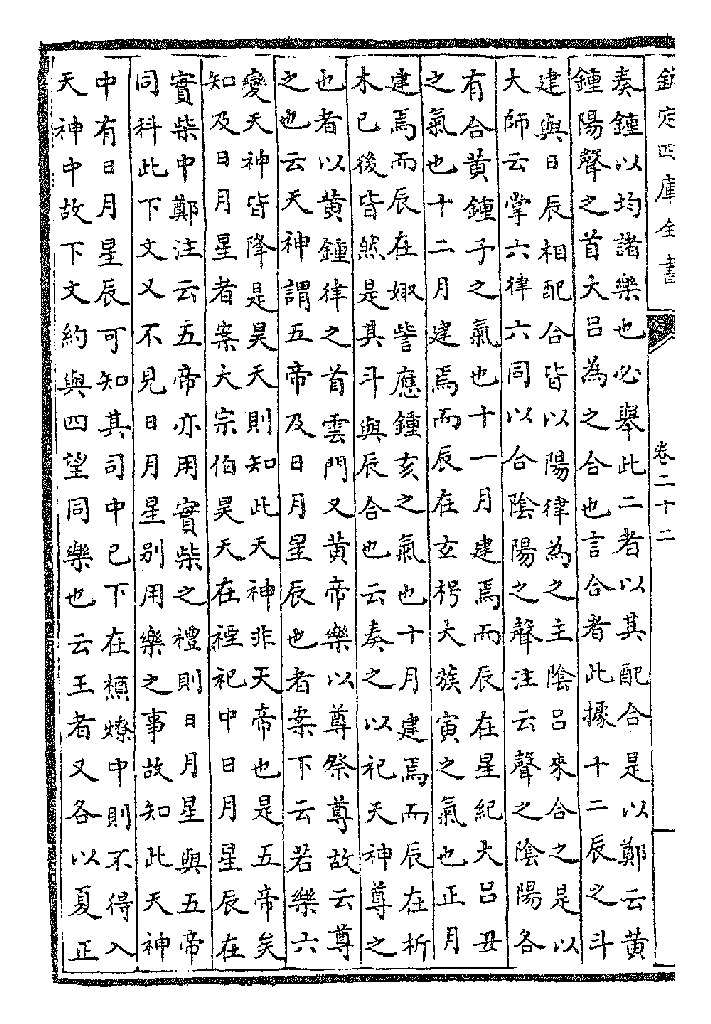 欽定四庫全書
卷二十二
奏鍾以均諸樂也必舉此二者以其配合是以鄭云黄
鍾陽聲之首大吕為之合也言合者此據十二辰之斗
建與日辰相配合皆以陽律為之主陰吕來合之是以
大師云掌六律六同以合陰陽之聲注云聲之陰陽各
有合黄鍾子之氣也十一月建焉而辰在星紀大吕丑
之氣也十二月建焉而辰在玄枵大族寅之氣也正月
建焉而辰在娵訾應鍾亥之氣也十月建焉而辰在析
木已後皆然是其斗與辰合也云奏之以祀天神尊之
也者以黄鍾律之首雲門又黄帝樂以尊祭尊故云尊
之也云天神謂五帝及日月星辰也者案下云若樂六
變天神皆降是昊天則知此天神非天帝也是五帝矣
知及日月星者案大宗伯昊天在禋祀中日月星辰在
實柴中鄭注云五帝亦用實柴之禮則日月星與五帝
同科此下文又不見日月星别用樂之事故知此天神
中有日月星辰可知其司中已下在槱燎中則不得入
天神中故下文約與四望同樂也云王者又各以夏正